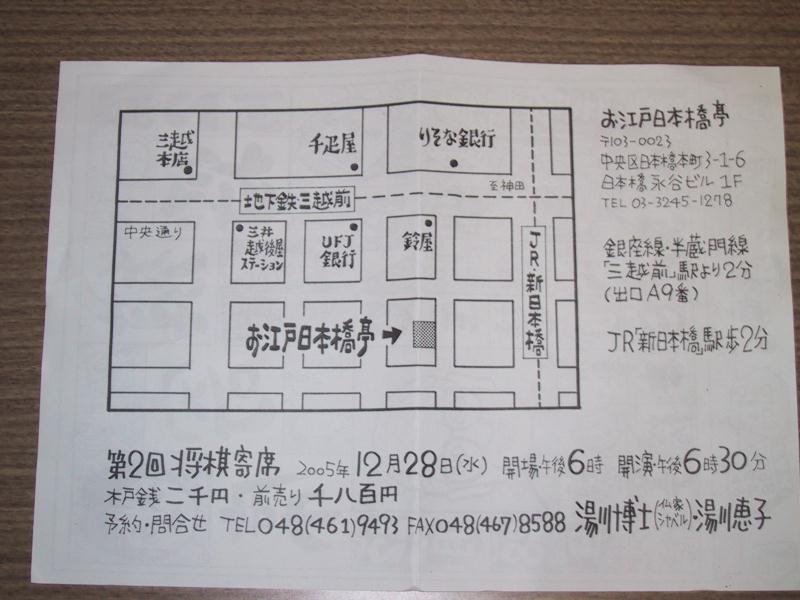 三越
本店
千疋屋
りそな銀行
地下鉄三越前
至神田
中央通り
三井
越後屋
ステーション
UFJ
銀行
鈴屋
JR・新日本橋
お江戸日本橋亭
お江戸日本橋亭
〒103-0023
中央区日本橋本町3-1-6
日本橋永谷ビル1F
TEL 03-3245-1278
銀座線・半蔵門線
「三越前」駅より2分
(出口A9番)
JR「新日本橋」駅歩2分
第2回将棋寄席 2005年12月28日(水) 開場午後6時 開演・午後6時30分
木戸銭二千円・前売り千八百円
予約・問合せ TEL048(461)9493 FAX048(467)8588 湯川博士(仏家シャベル)・湯川恵子